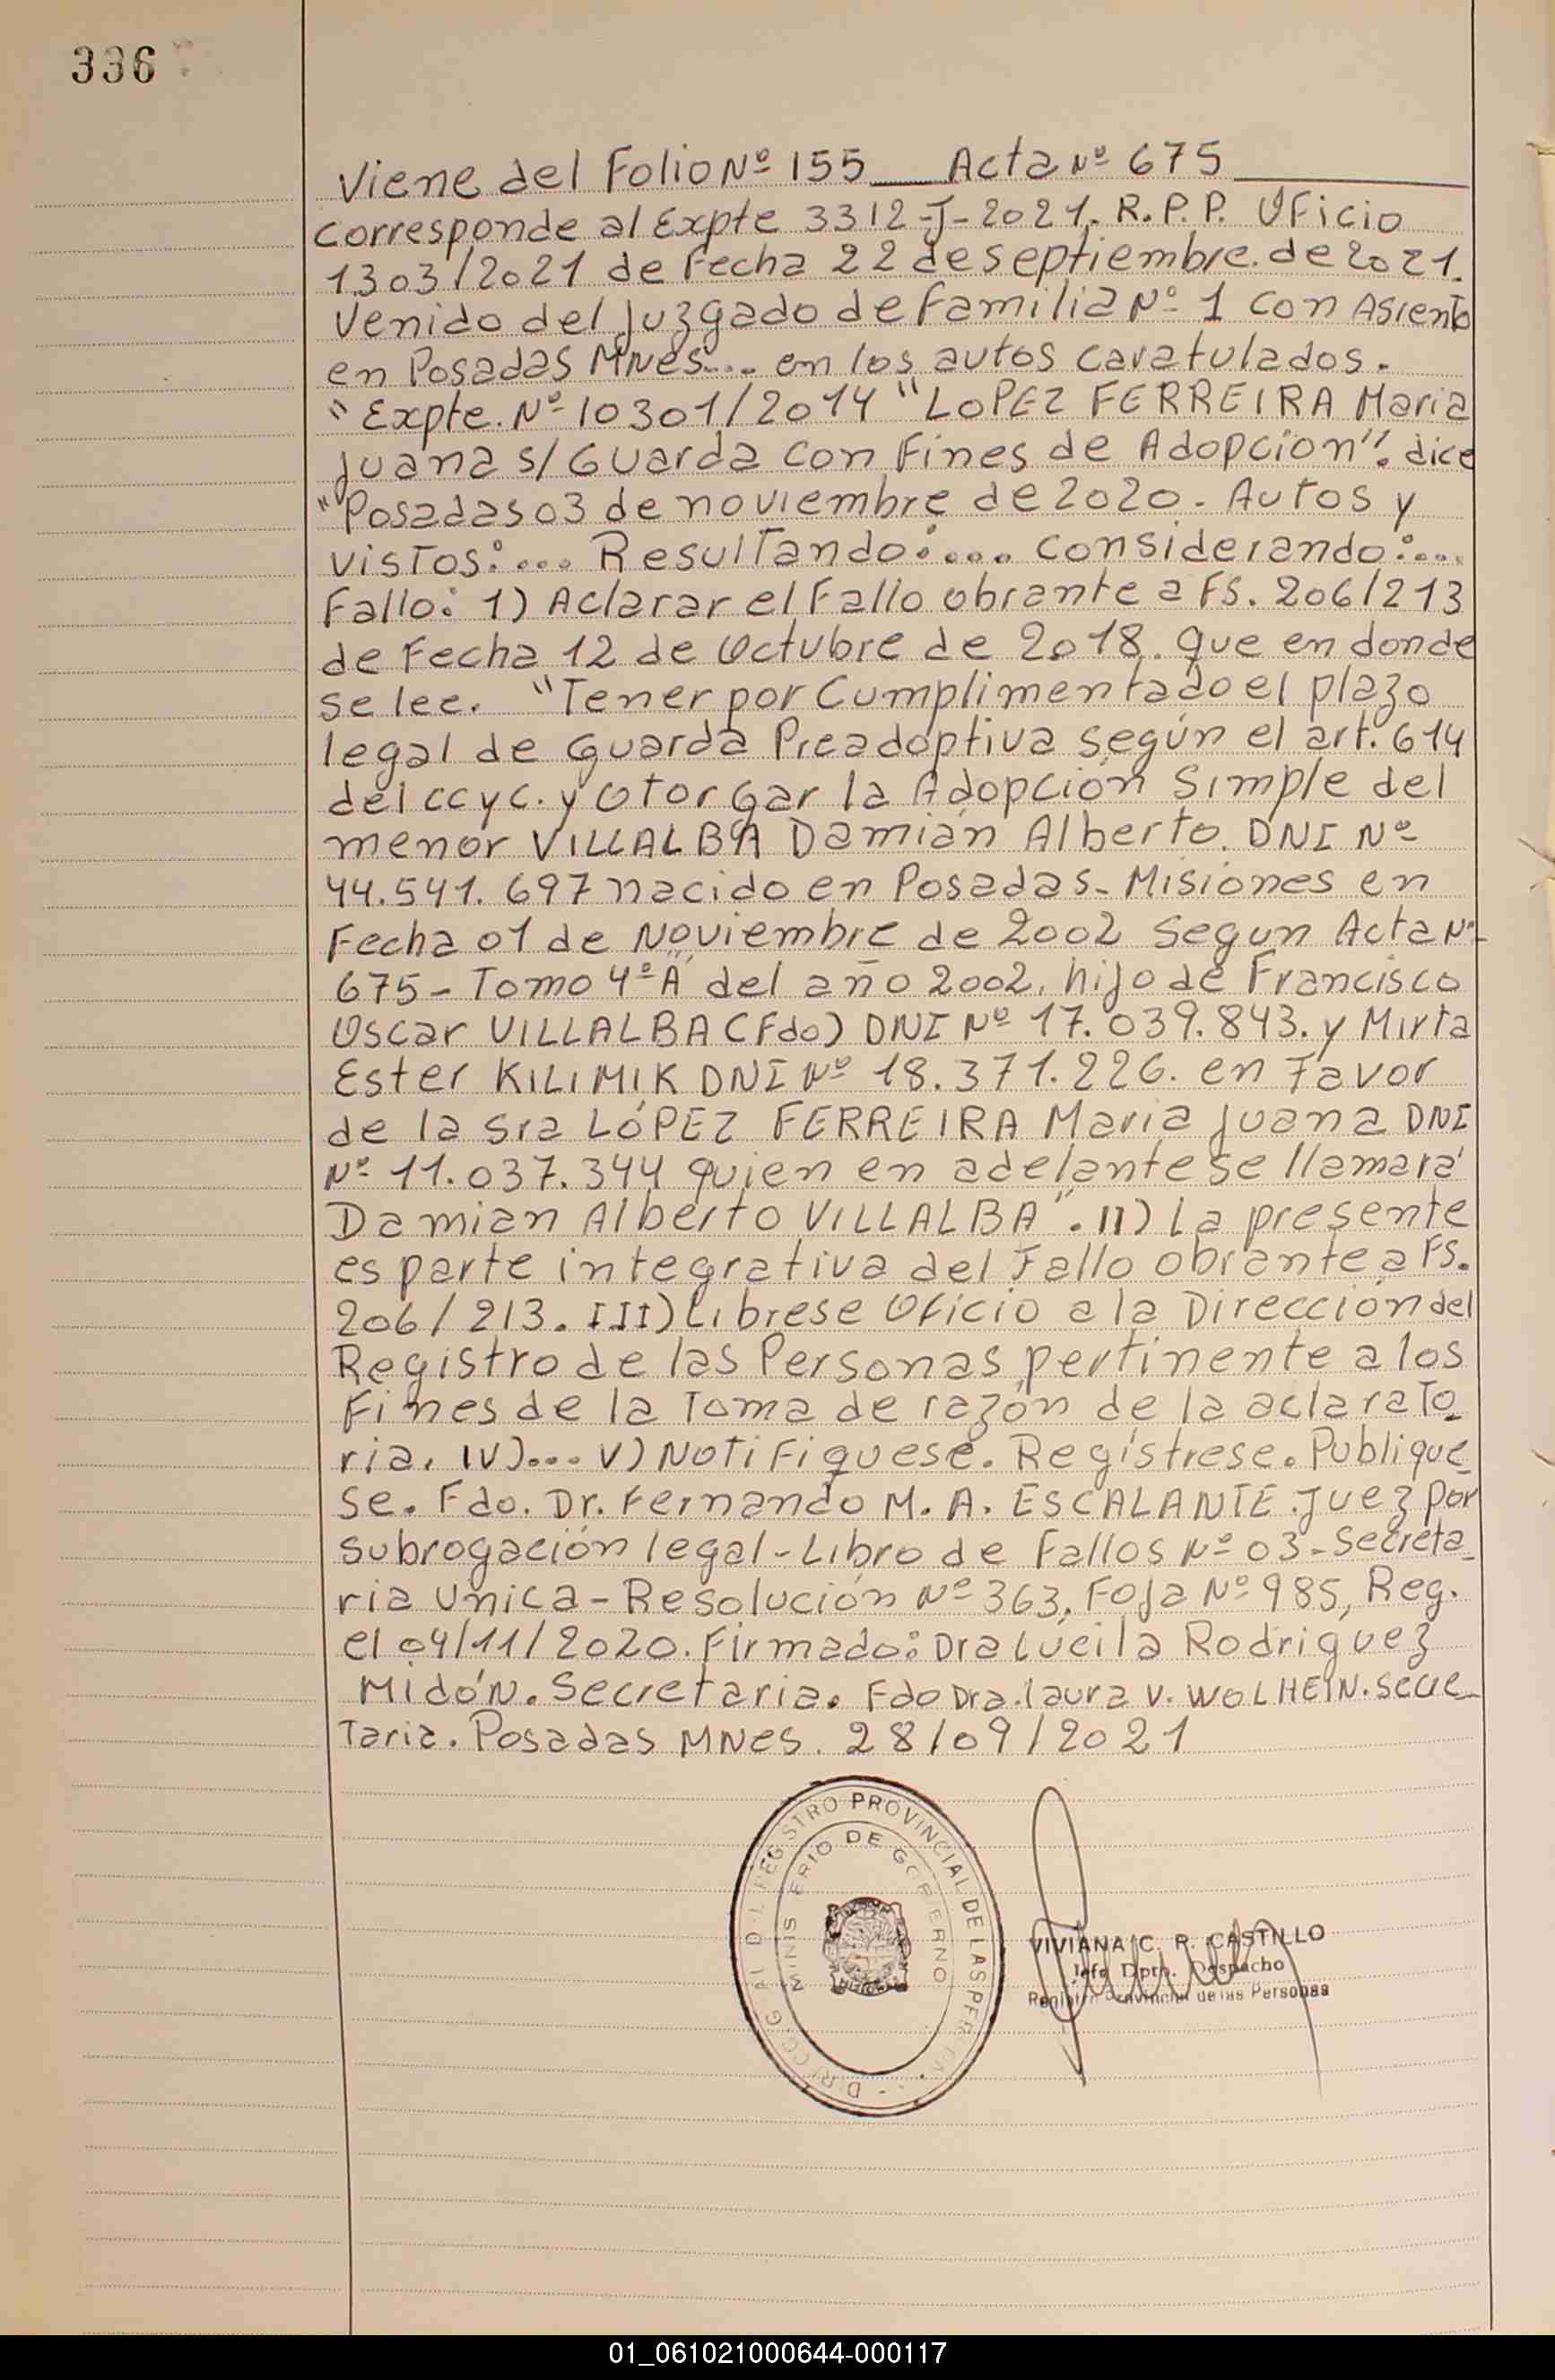 336
Viene del Folio Nº 155 Acta Nº 675
corresponde al Expte 3312-J-2021. R.P.P. Oficio
1303/2021 de Fecha 22 de septiembre. de 2021.
Venido del Juzgado de Familia Nº 1 con Asiento
en Posadas MNES... en los autos caratulados.
"Expte. Nº 10301/2014 "LOPEZ FERREIRA Maria
Juana s/ Guarda con Fines de Adopcion". dice
"Posadas 03 de noviembre de 2020. Autos y
vistos:... Resultando:... considerando:...
Fallo: 1) Aclarar el Fallo obrante a FS. 206/213
de Fecha 12 de Octubre de 2018. que en donde
se lee. "Tener por Cumplimentado el plazo
legal de Guarda Preadoptiva según el art. 614
del ccyc. y Otorgar la Adopción Simple del
menor VILLALBA Damián Alberto. DNI Nº
44.541.697 nacido en Posadas-Misiones en
Fecha 01 de Noviembre de 2002 Segun Acta Nº
675- Tomo 4º "A" del año 2002. hijo de Francisco
Oscar VILLALBA (Fdo) DNI Nº 17.039.843. y Mirta
Ester KILIMIK DNI Nº 18.371.226. en Favor
de la Sra LÓPEZ FERREIRA Maria Juana DNI
Nº 11.037.344 quien en adelante se llamará
Damian Alberto VILLALBA". II) La presente
es parte integrativa del Fallo obrante a FS.
206/213. III) Librese Oficio a la Dirección del
Registro de las Personas pertinente a los
Fines de la toma de razón de la aclarato_
ria. IV)... V) NOTIFIQUESE. Regístrese. Publique_
se. Fdo. Dr. Fernando M. A. ESCALANTE. Juez por
subrogación legal-Libro de Fallos Nº 03-Secreta_
ria Unica-Resolución Nº 363, Foja Nº 985, Reg.
el 04/11/2020. Firmado: Dra Lucila Rodriguez
Midón. Secretaria. Fdo Dra. Laura V. WOLHEIN. Secre_
Taria. Posadas MNES. 28/09/2021
REGISTRO PROVINCIAL DE LAS
MINISTERIO DE GOBIERNO
VIVIANA C. R. CASTILLO
Jefe Dpto. Despacho
Registro Provincial de las Personas
01_061021000644-000117